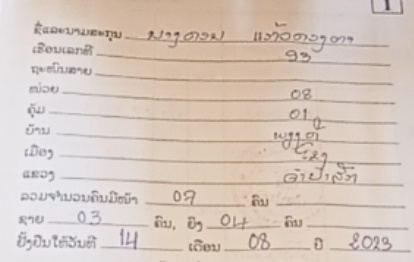 1
ຊື່ແລະນາມສະກຸນ ນາງ ດວນ ແກ້ວດວງຕາ
ເຮືອນເລກທີ 93
ຖະໜົນສາຍ
ໜ່ວຍ 08
ຄຸ້ມ 01
ບ້ານ
ເມືອງ
ແຂວງ ຈຳປາສັກ
ລວມຈຳນວນຄົນມີໜ້າ 07 ຄົນ
ຊາຍ 03 ຄົນ, ຍິງ 04 ຄົນ
ຢັ້ງຢືນໃຫ້ວັນທີ 14 ເດືອນ 08 ປີ 2023